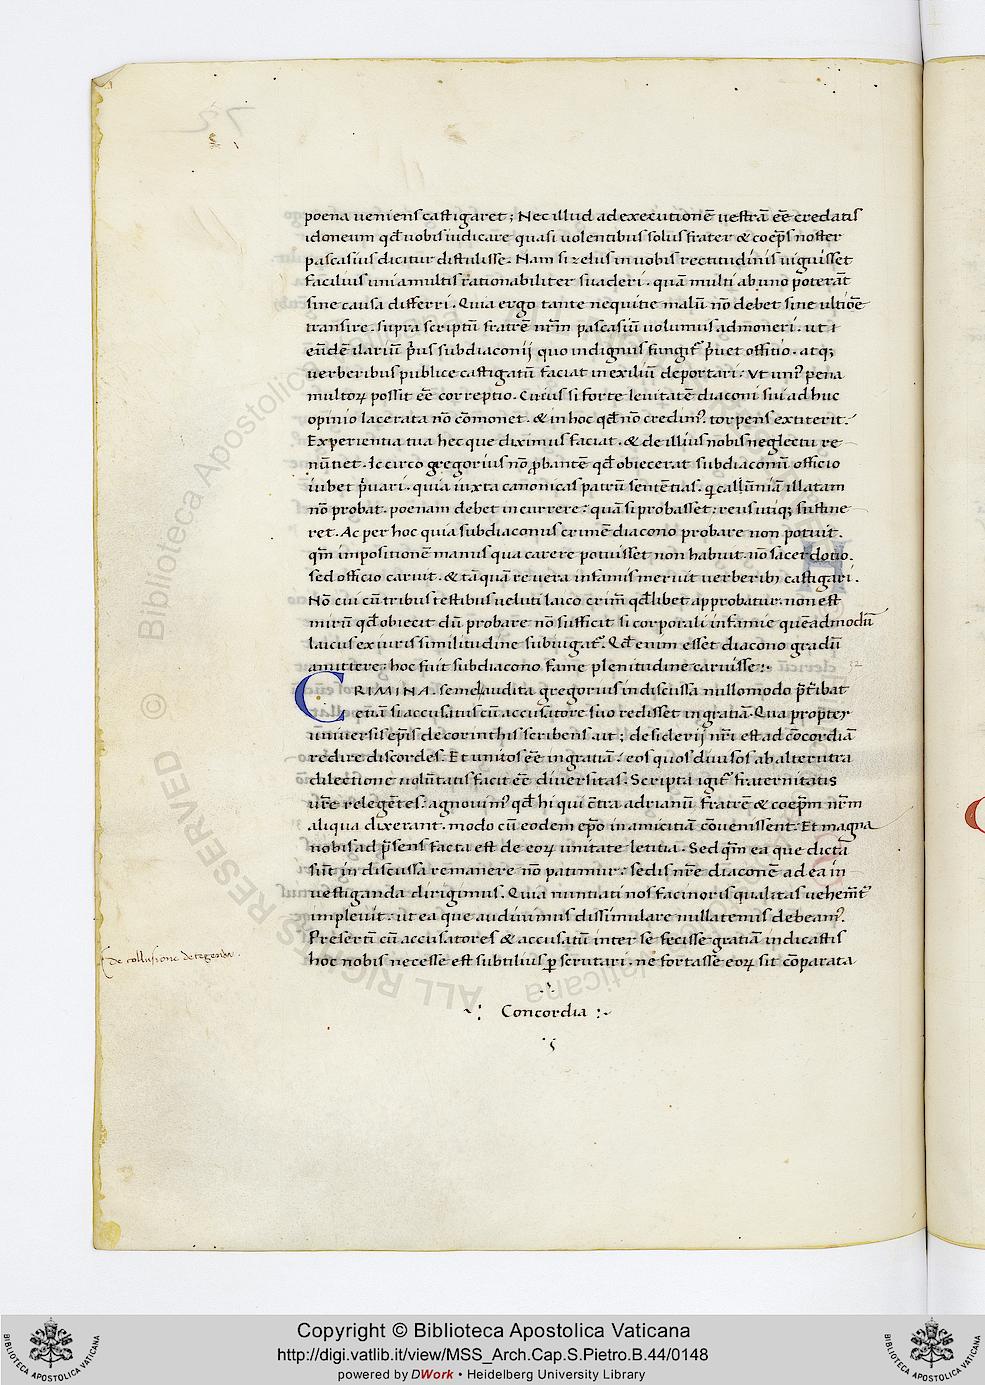 poena ueniens castigaret; Nec illud ad executionē uestrā eē credatis
idoneum qđ uobis iudicare quasi uolentibus solus frater & coep̄s noster
pascasius dicitur distulisse. Nam si zelus in uobis rectitudinis uiguisset
facilius uni a multis rationabiliter suaderi. quā multi ab uno p̄oterāt
sine causa differri. Quia ergo tante nequitie malū nō debet sine ultiōe
transire. supra scriptū fratrē nr̄m pascasiū uolumus admoneri. ut
eūdē ilariū p̄us subdiaconij quo indignus fungit᷑ p̄uet offitio. atq;
uerberibus publice castigatū faciat in exiliū deportari. Vt uni᾽ pena
multoꝝ possit eē correptio. Cuius si forte leuitatē diaconi sui ad huc
opinio lacerata nō cōmonet. & in hoc qđ nō credim᾽. torpens extiterit.
Experientia tua hec que diximus faciat. & de illius nobis neglectu re
nūtiet. Ic circo gregorius nō ꝓbantē qđ obiecerat subdiaconū officio
iubet p̄uari. quia iuxta canonicas patrū sentētias. q̱ calūmniā illatam
nō probat. poenam debet incurrere: quā si probasset: reus utiq; sustine
ret. Ac per hoc quia subdiaconus crimē diacono probare non potuit.
qm̄ impositionē manus qua carere potuisset non habuit. nō sacerdotio.
sed officio caruit. & tāquā re uera infamis meruit uerberibꝫ castigari.
Nō cui cū tribus testibus ueluti laico crim̄ qđlibet approbatur. non est
mirū qđ obiecit dū probare nō sufficit si corporali infamie quēadmodū
laicus ex iuris similitudine subiugat᷑. Qđ enim esset diacono gradū
amittere: hoc fuit subdiacono fame plenitudine caruisse:·
32
CRIMINA. semel audita gregorius indiscussa nullomodo p̄t̄ibat
etiā si accusatus cū accusatore suo redisset in gratiā. Qua propter
uniuersis ep̄is de corinthis scribens. ait; desiderij nr̄i est ad cōcordiā
redire discordes. Et unitos eē in gratiā: eos quos diuisos ab alterutra
dilectione uolūtatis facit eē diuersitas. Scripta igit᷑ fraternitatis
ur̄e relegētes. agnouim᾽ qđ hi qui cōtra adrianū fratrē & coep̄m nr̄m
aliqua dixerant. modo cū eodem ep̄o in amicitiā cōuenissent. Et magna
nobis ad p̄sens facta est de eoꝝ unitate letitia. Sed qm̄ ea que dictā
sūt in discussa remanere nō patimur. sedis nr̄e diaconē ad ea in
uestiganda dirigimus. Quia nuntiati nos facinoris qualitas uehem̄t᷑
impleuit. ut ea que audiuimus dissimulare nullatenus debeam᾽.
Presertī cū accusatores & accusatū inter se fecisse gratiā indicastis
hoc nobis necesse est subtilius ꝑscrutari. ne fortasse eoꝝ sit cōparata
Concordia
de collusione detegenda.
Copyright © Biblioteca Apostolica Vaticana
http://digi.vatlib.it/view/MSS_Arch.Cap.S.Pietro.B.44/0148
powered by DWork • Heidelberg University Library
BIBLIOTECA APOSTOLICA VATICANA
BIBLIOTECA APOSTOLICA VATICANA
© Biblioteca Apostolica Vaticana ALL RIGHTS RESERVED